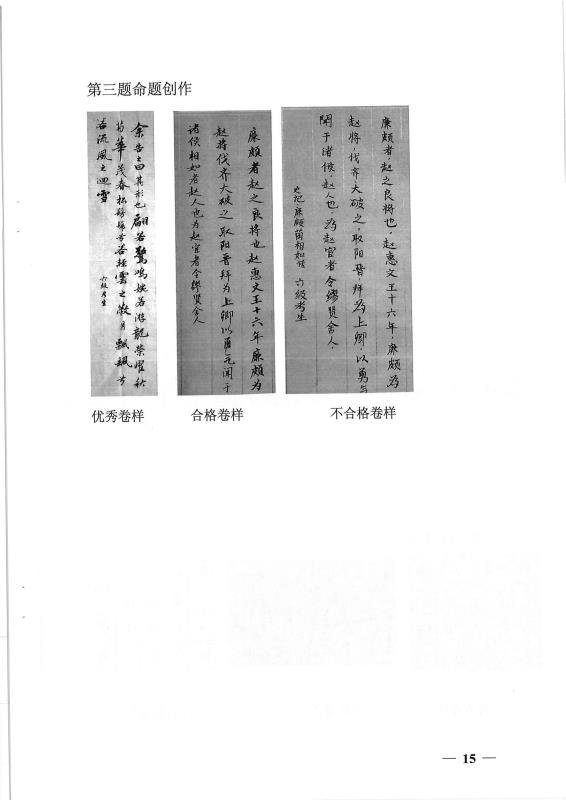 第三题命题创作
余告之曰其形也翩若惊鸿婉若游龙荣耀秋
菊華茂春松髣髴兮若轻雲之蔽月飘飖兮
若流風之迴雪
六级考生
廉颇者赵之良将也赵惠文王十六年廉颇为
赵将伐齐大破之取阳晋拜为上卿以勇气闻于
诸侯相如者赵人也为赵宦者令缪贤舍人
廉颇者,赵之良将也,赵惠文王十六年,廉颇為
赵将,伐齐大破之,取阳晋,拜為上卿,以勇气
闻于诸侯,赵人也,為赵宦者令缪贤舍人,
史记廉颇蔺相如传 六级考生
优秀卷样
合格卷样
不合格卷样
— 15 —